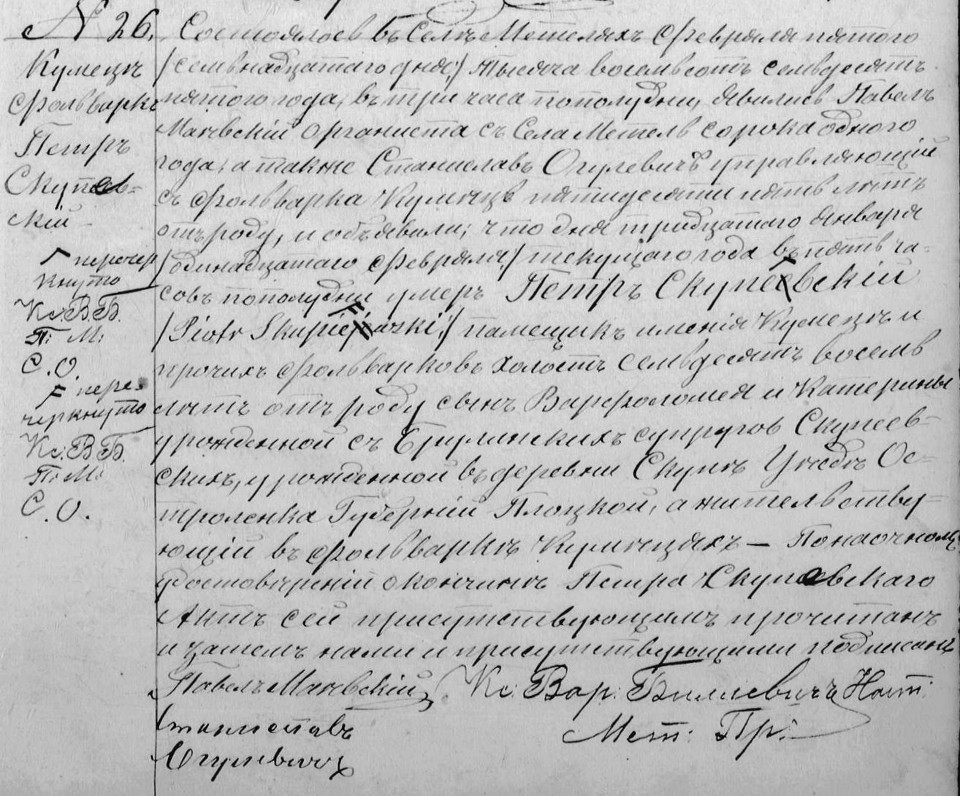 N 26.
Кумецъ
Фольваркъ
Петръ
Скупев-
скій
Г перечер
кнуто
Кс: В.Б.
П: М:
С. О.
F пере-
черкнуто
Кс: В.Б.
П. М.
С. О.
Состоялось въ Селѣ Метеляхъ Февраля пятого
/семнадцатаго дня:/ тысяча восемьсотъ семдесятъ
пятого года, въ три часа пополудни, явились Павелъ
органиста съ Села Метель сорока одного
года, а также Станиславъ Огулевичъ управляющій
съ фольварка Кумѣцъ пятидесяти пять лѣтъ
отъ роду, и объявили, что дня тридцатаго Января
/одинадцатаго Февраля:/ текущаго года въ пять ча-
совъ пополудни умеръ Петръ Скупевскій
/Piotr :/ помещикъ имѣнія Кумецъ и
прочихъ фольварковъ холостъ семдесятъ восемь
лѣтъ отъ роду сынъ Варфоломея и Катерины
урожденной съ супругов Скупев-
скихъ, урожденной въ деревни Уѣздѣ Ос-
троленка Губерній Плоцкой, а жительству-
ющій въ фольваркѣ Кумѣцахъ — По наочномъ
достовѣреній о кончинѣ Петра Скупевскаго
Актъ сей присутствующимъ прочитанъ
и затемъ нами и присутствующими подписанъ
Павелъ
Кс: Вар: Билевичъ Наст:
Мет: Пр:
Станиславъ
Огулевичъ